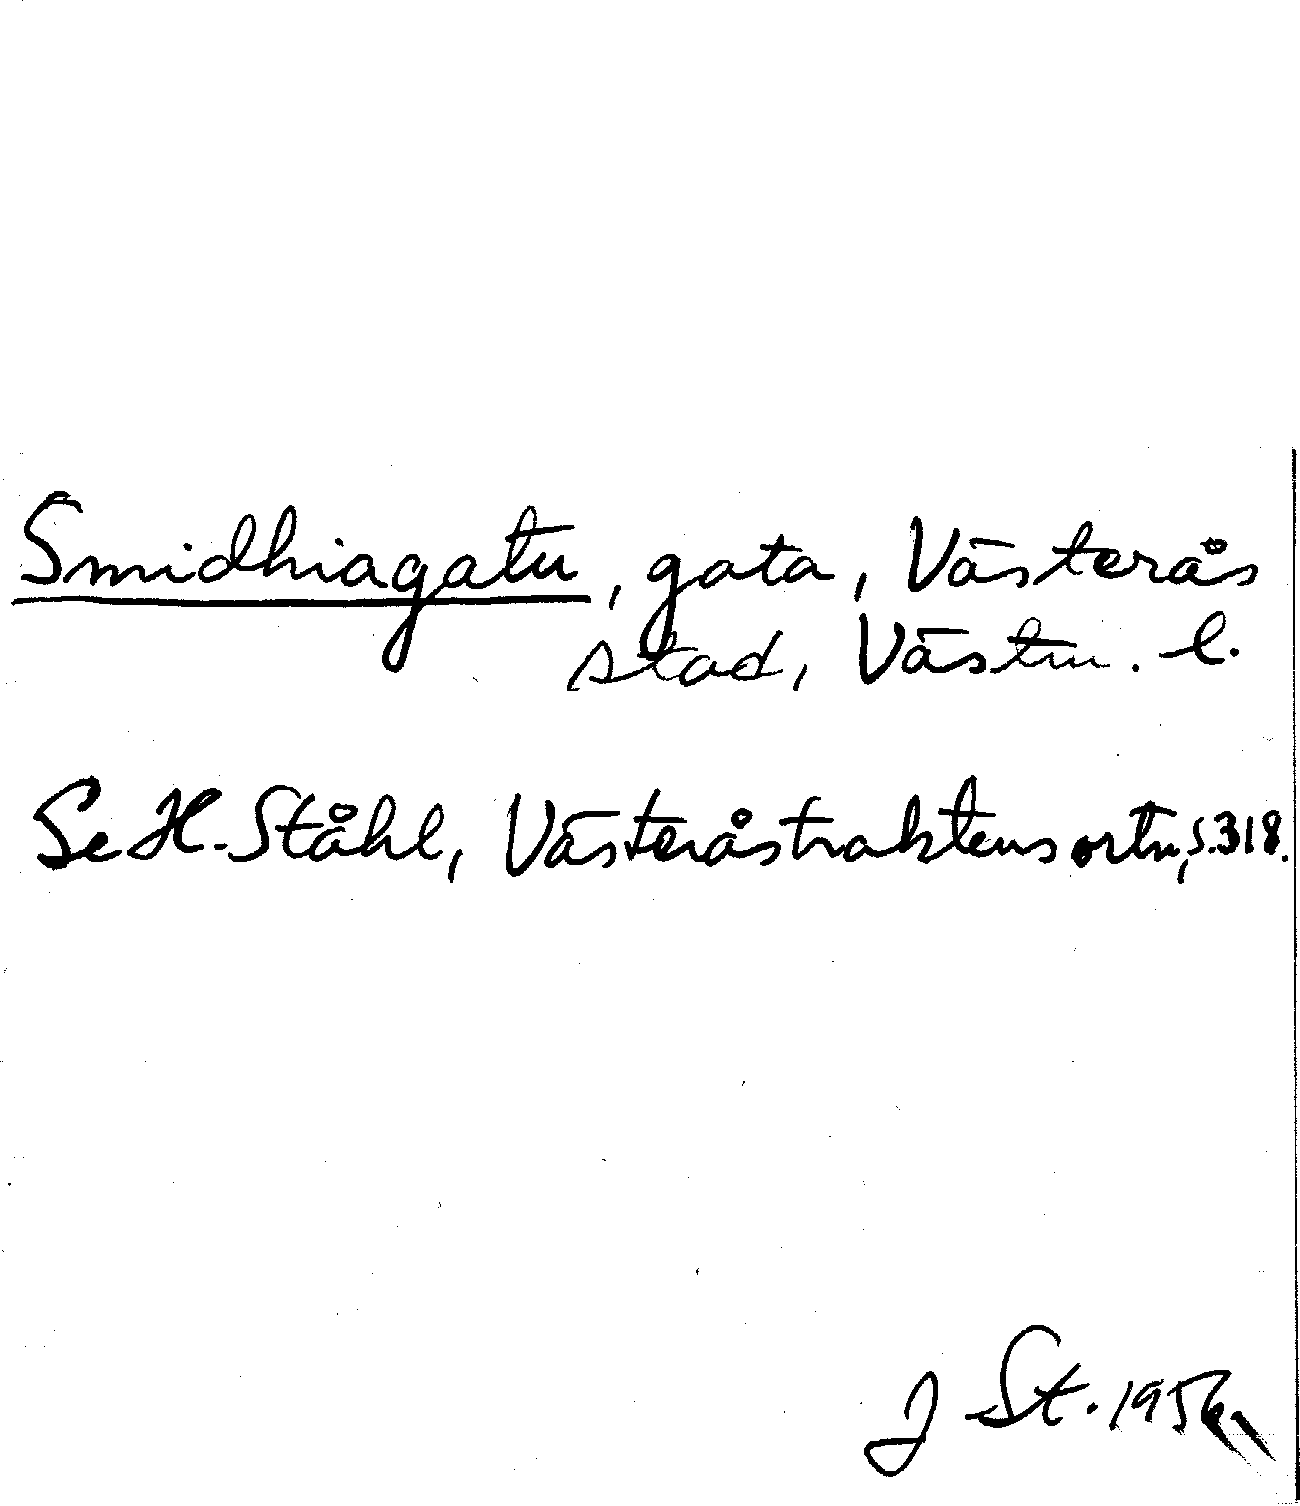 Smidhiagatu, gata, Västerås
stad, Västm. l.
Se H. Ståhl, Västeråstraktens ortn., s. 318.
J St.